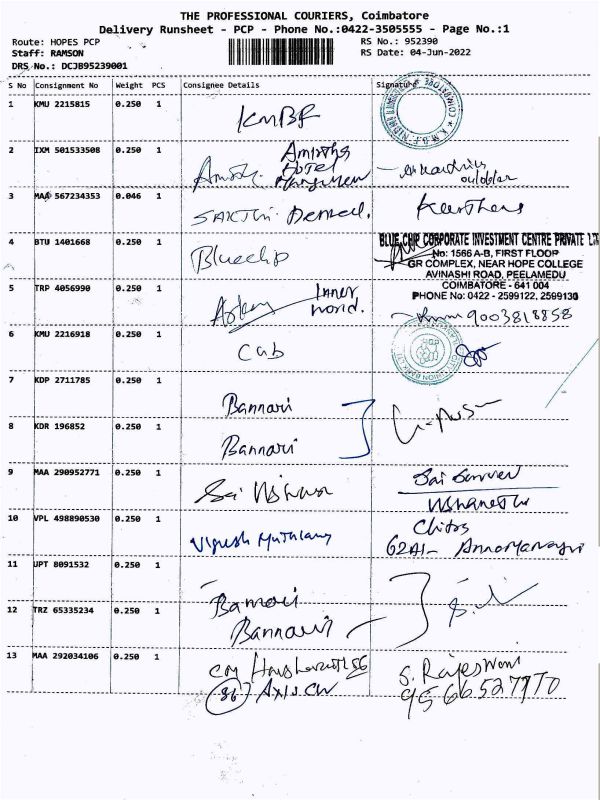 THE PROFESSIONAL COURIERS, Coimbatore
Delivery Runsheet - PCP - Phone No.:0422-3505555 - Page No.:1
Route: HOPES PCP RS No.: 952390
Staff: RAMSON RS Date: 04-Jun-2022
DRS No.: DCJB95239001
S No Consignment No Weight PCS Consignee Details Signature
1 KMU 2215815 0.250 1 KMBF
2 IXM 501533508 0.250 1 Hotel
3 MAA 567234353 0.046 1 SAKTHI
4 BTU 1401668 0.250 1 Bluechip
BLUE CHIP CORPORATE INVESTMENT CENTRE PRIVATE LT
No: 1566 A-B, FIRST FLOOR
GR COMPLEX, NEAR HOPE COLLEGE
AVINASHI ROAD, PEELAMEDU
COIMBATORE - 641 004
PHONE No: 0422 - 2599122, 2599130
5 TRP 4056990 0.250 1 Inner World. 9003818858
6 KMU 2216918 0.250 1 Cub
7 KDP 2711785 0.250 1 Bannari
8 KDR 196852 0.250 1 Bannari
9 MAA 290952771 0.250 1 Sai
10 VPL 498890530 0.250 1 Vignesh
11 JPT 8091532 0.250 1 Bannari
12 TRZ 65335234 0.250 1 Bannari
13 MAA 292034106 0.250 1 S. Rajeswari
86 Axis 9566527770